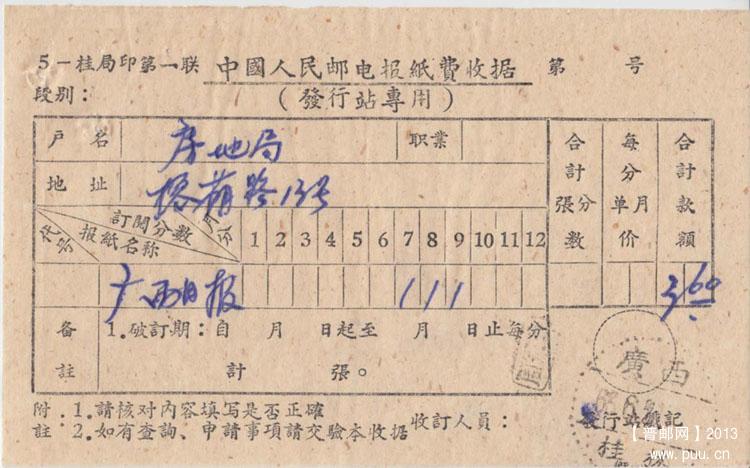 5－桂局印第一联 中國人民邮电报紙費收据 第 号
段别：
（發行站專用）
户名 房地局 职業 合計張分數 每分单月价 合計款額
地址 路13号
代号 訂閱分數 月份 报紙名称 1 2 3 4 5 6 7 8 9 10 11 12
广西日报 1 1 1 3.60
备註 1.破訂期：自 月 日起至 月 日止每分
計 張。
廣西
附註：1.請核对内容填写是否正確
2.如有查詢、申請事項請交驗本收据
收訂人員：
發行站戳記
桂
【普邮网】2013
www.puu.cn